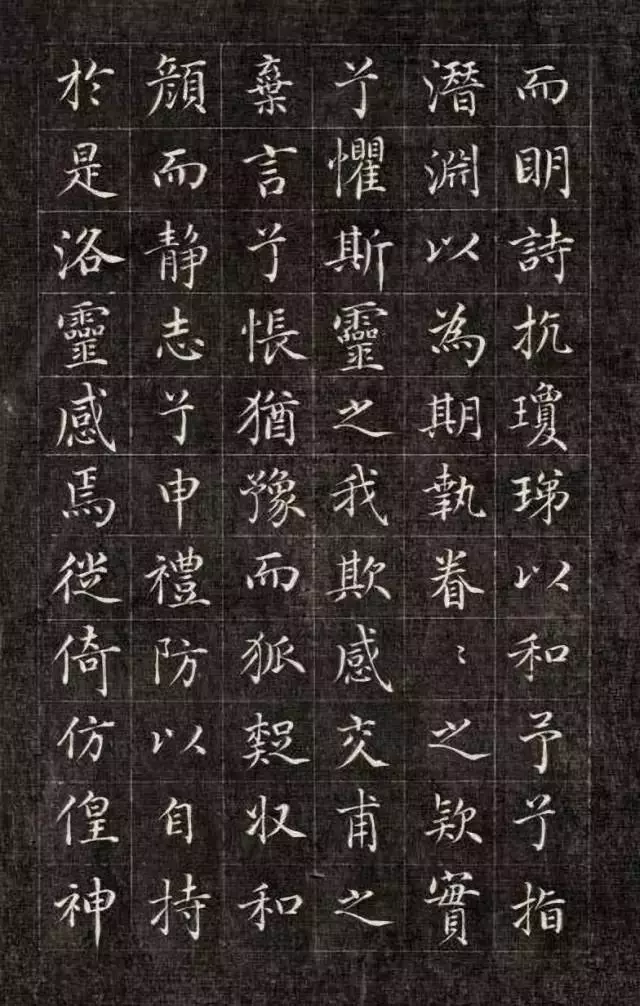 而明詩抗瓊珶以和予兮指
潛淵以為期執眷〻之欵實
兮懼斯靈之我欺感交甫之
棄言兮悵猶豫而狐疑収和
顔而靜志兮申禮防以自持
於是洛靈感焉徙倚仿偟神